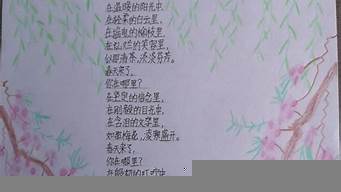 在温暖的阳光中,
在轻柔的白云里,
在摇曳的柳枝里,
在灿烂的笑容里,
似甜清茶,淡淡芬芳。
春天来了,
你在哪里?
在坚定的信念里,
在刚毅的目光中,
在含泪的文字里,
如寒梅花,凌寒盛开。
春天来了,
你在哪里?